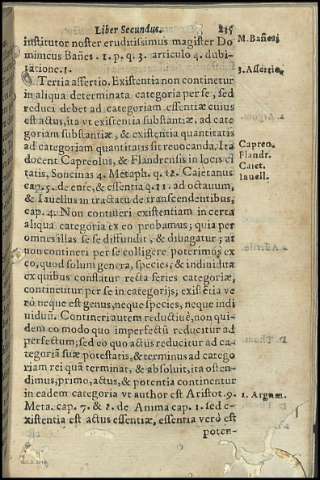 Liber Secundus. 235
institutor noster eruditissimus magister Do
minicus Bañes. 1. p. q. 3. articulo 4. dubi-
tatione. 1.
M. Bañes.
¶ Tertia assertio. Existentia non continetur
3. Assertio.
in aliqua determinata categoria per se, sed
reduci debet ad categoriam essentiæ cuius
est actus, ita vt existentia substantiæ, ad cate
goriam substantiæ, & existentia quantitatis
ad categoriam quantitatis sit reuocanda. Ita
docent Capreolus, & Flandrensis in locis ci
tatis, Soncinas 4. Metaph. q. 12. Caietanus
cap. 5. de ente, & essentia q. 11. ad octauum,
& Iauellus in tractatu de transcendentibus,
Capreo.
Flandr.
Caiet.
Iauell.
cap. 4. Non contineri existentiam in certa
aliqua categoria ex eo probamus; quia per
omnes illas se se diffundit, & diuagatur; at
non contineri per se colligere poterimus ex
eo, quod solum genera, species, & indiuidua
ex quibus constatur recta series categoriæ,
continetur per se in categorijs; existētia ve
rò neque est genus, neque species, neque indi
uiduū. Contineri autem reductiuè, non qui-
dem eo modo quo imperfectū reducitur ad
perfectum; sed eo quo actus reducitur ad ca-
tegoriā suæ potestatis, & terminus ad catego
riam rei quā terminat, & absoluit, ita osten-
dimus, primo, actus, & potentia continentur
in eadem categoria vt author est Aristot. 9.
1. Argum.
Meta. cap. 7. & 2. de Anima cap. 1. sed e-
xistentia est actus essentiæ, essentia verò est
poten-